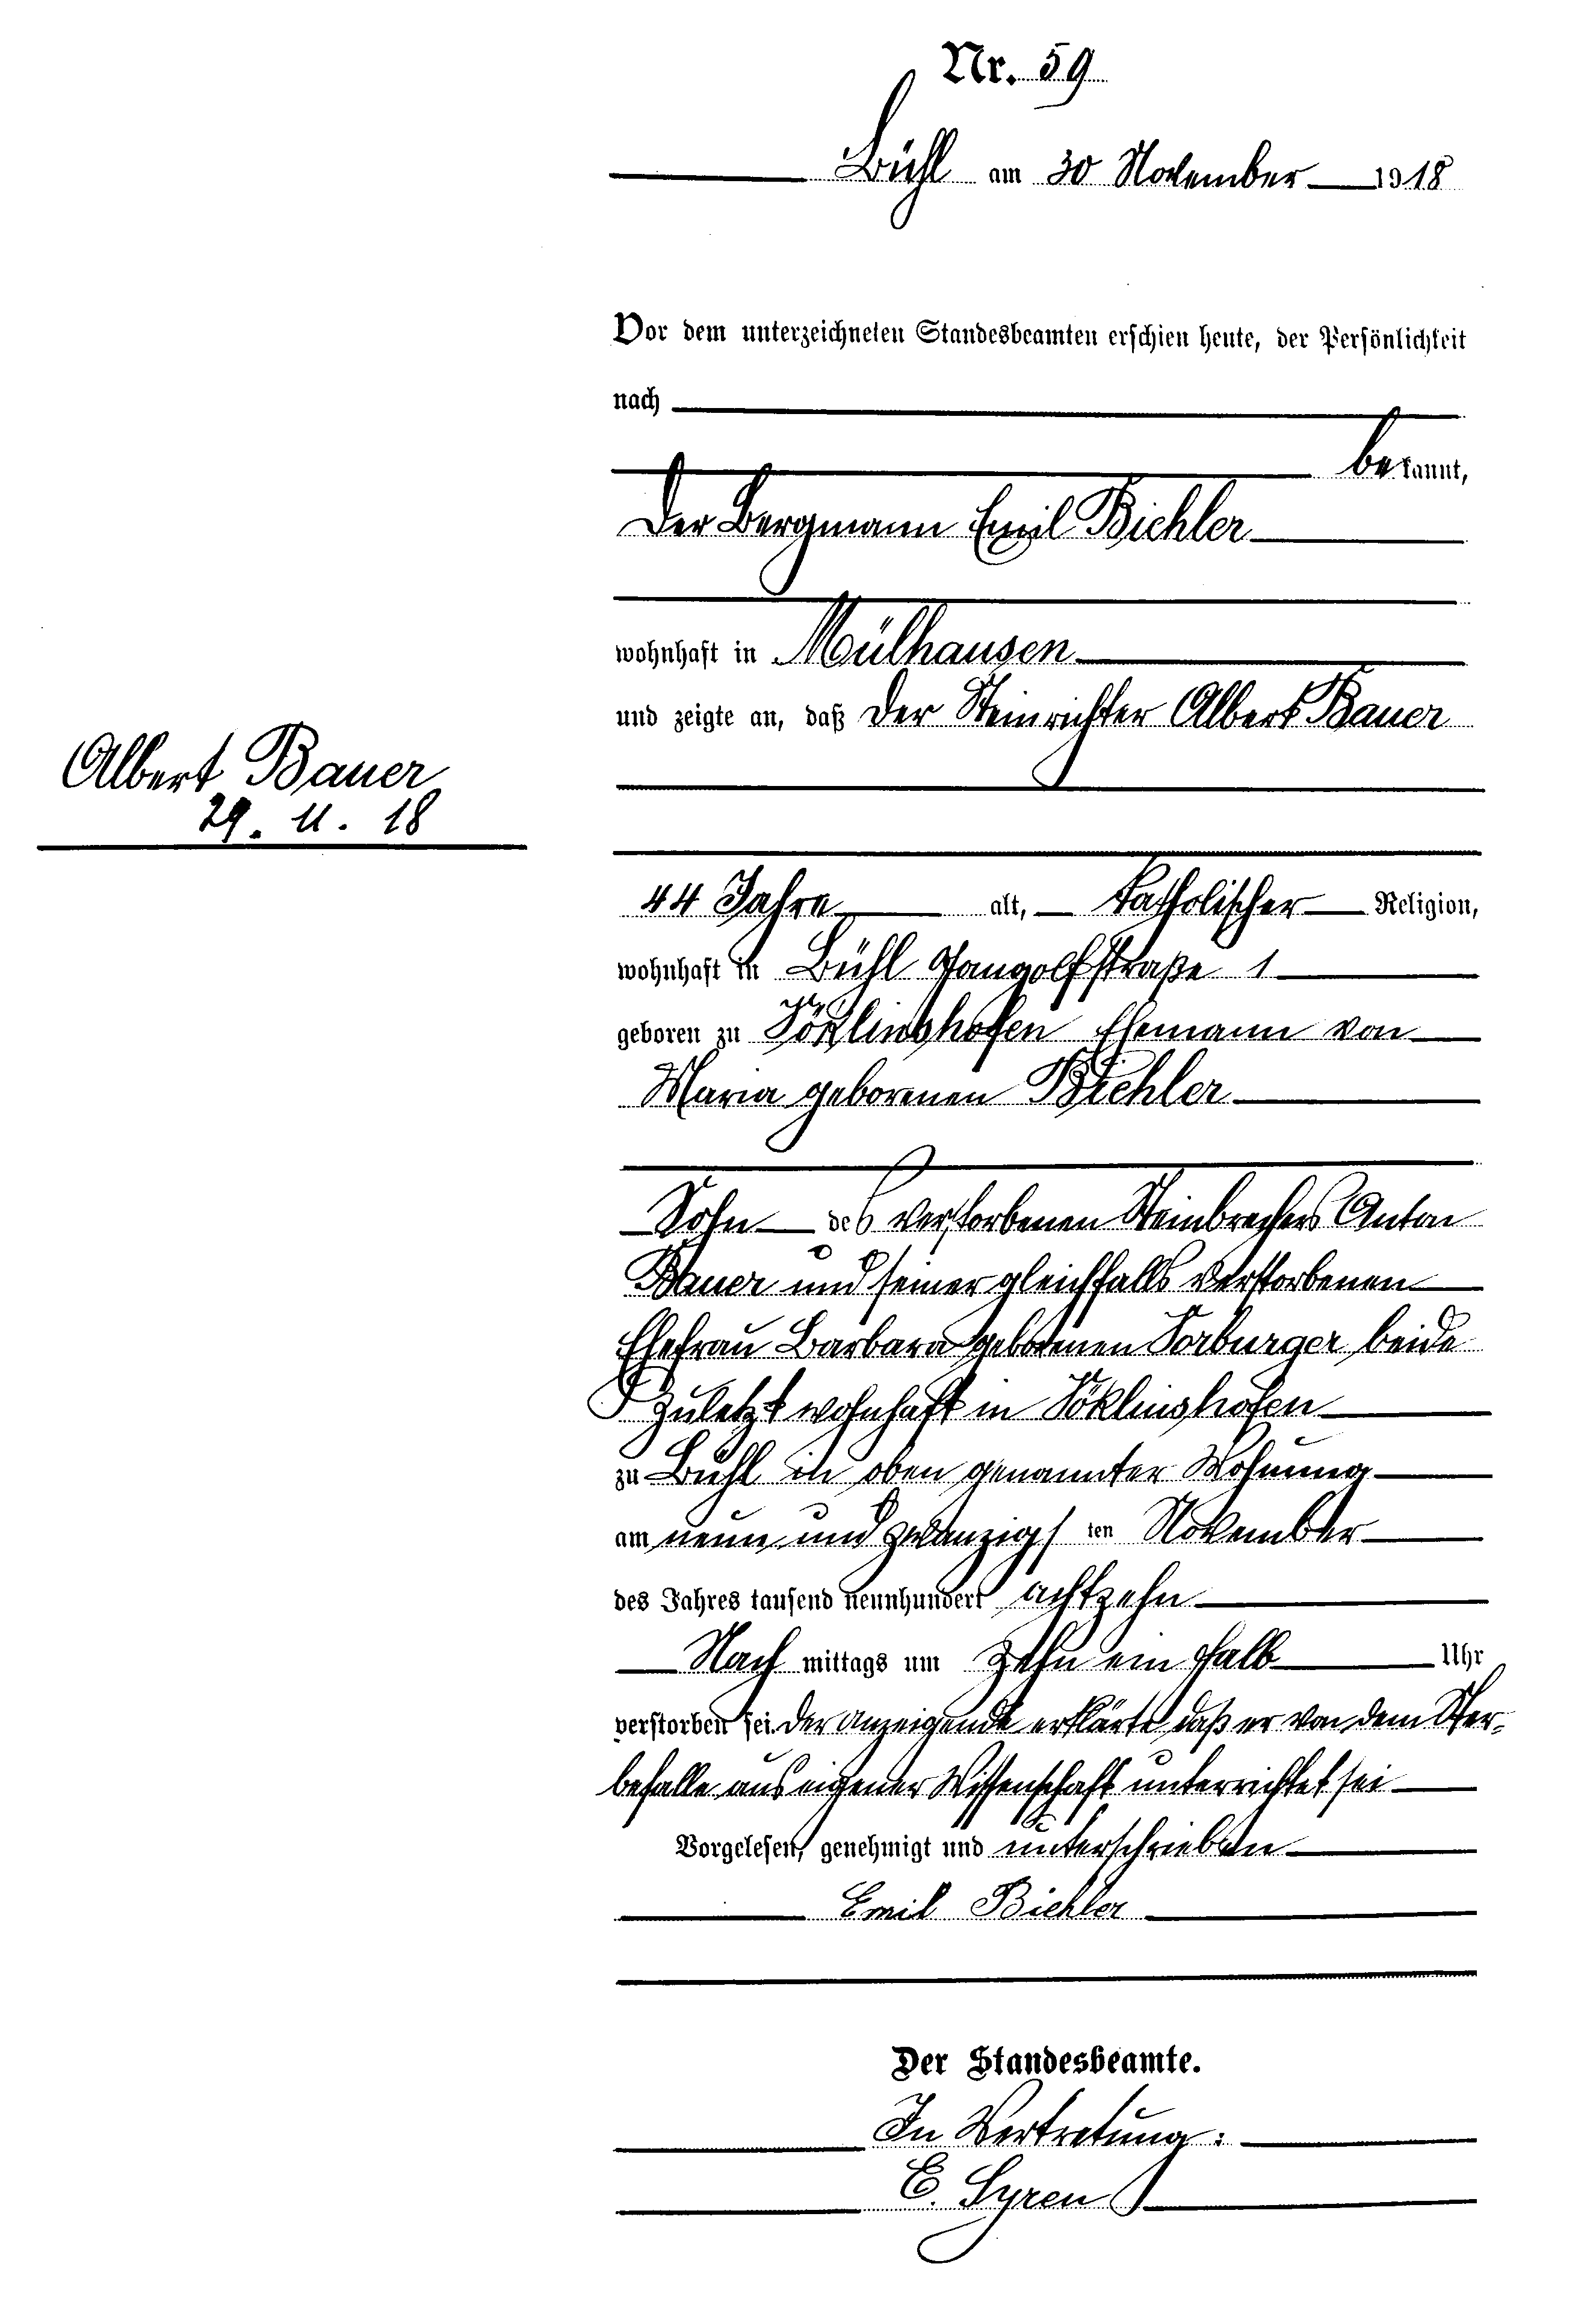 Nr. 59
Bühl am 30 November 1918
Vor dem unterzeichneten Standesbeamten erschien heute, der Persönlichkeit
nach
bekannt,
der Bergmann Emil Biehler
wohnhaft in Mülhausen
und zeigte an, daß der Steinrichter Albert Bauer
Albert Bauer
29. 11. 18
44 Jahre alt, katholischer Religion,
wohnhaft in Bühl Gangolfstraße 1
geboren zu Vöklinshofen Ehemann von
Maria geborenen Biehler
Sohn des verstorbenen Steinbrechers Anton
Bauer und seiner gleichfalls verstorbenen
Ehefrau Barbara geborenen Vorburger beide
zuletzt wohnhaft in Vöklinshofen
zu Bühl in oben genannter Wohnung
am neun und zwanzigsten November
des Jahres tausend neunhundert achtzehn
Nach mittags um zehn ein halb Uhr
verstorben sei. Der anzeigende erklärte daß er von dem Ster-
befalle aus eigener Wissenschaft unterrichtet sei
Vorgelesen, genehmigt und unterschrieben
Emil Biehler
Der Standesbeamte.
In Vertretung:
E. Syren